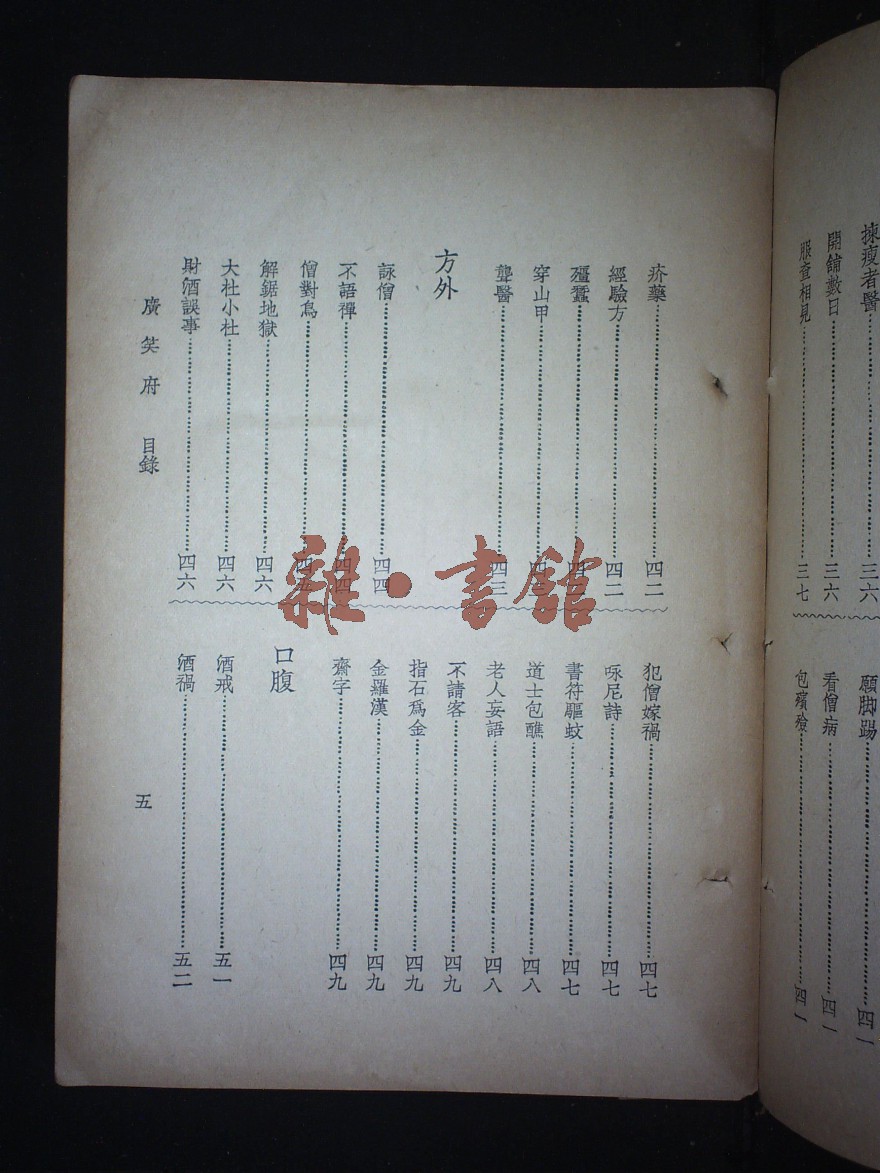 揀瘦者醫 三六
開舖數日 三六
服查相見 三七
願脚踢 四一
看僧病 四一
包殯殮 四一
疥藥 四二
經驗方 四二
殭蠶
穿山甲
聾醫 四三
方外
詠僧 四四
不語禪 四四
僧對鳥 四五
解鋸地獄 四六
大杜小杜 四六
財酒誤事 四六
犯僧嫁禍 四七
咏尼詩 四七
書符驅蚊 四七
道士包醮 四八
老人妄語 四八
不請客 四九
指石爲金 四九
金羅漢 四九
齋字 四九
口腹
酒戒 五一
酒禍 五二
廣笑府 目錄
五
雜·書館